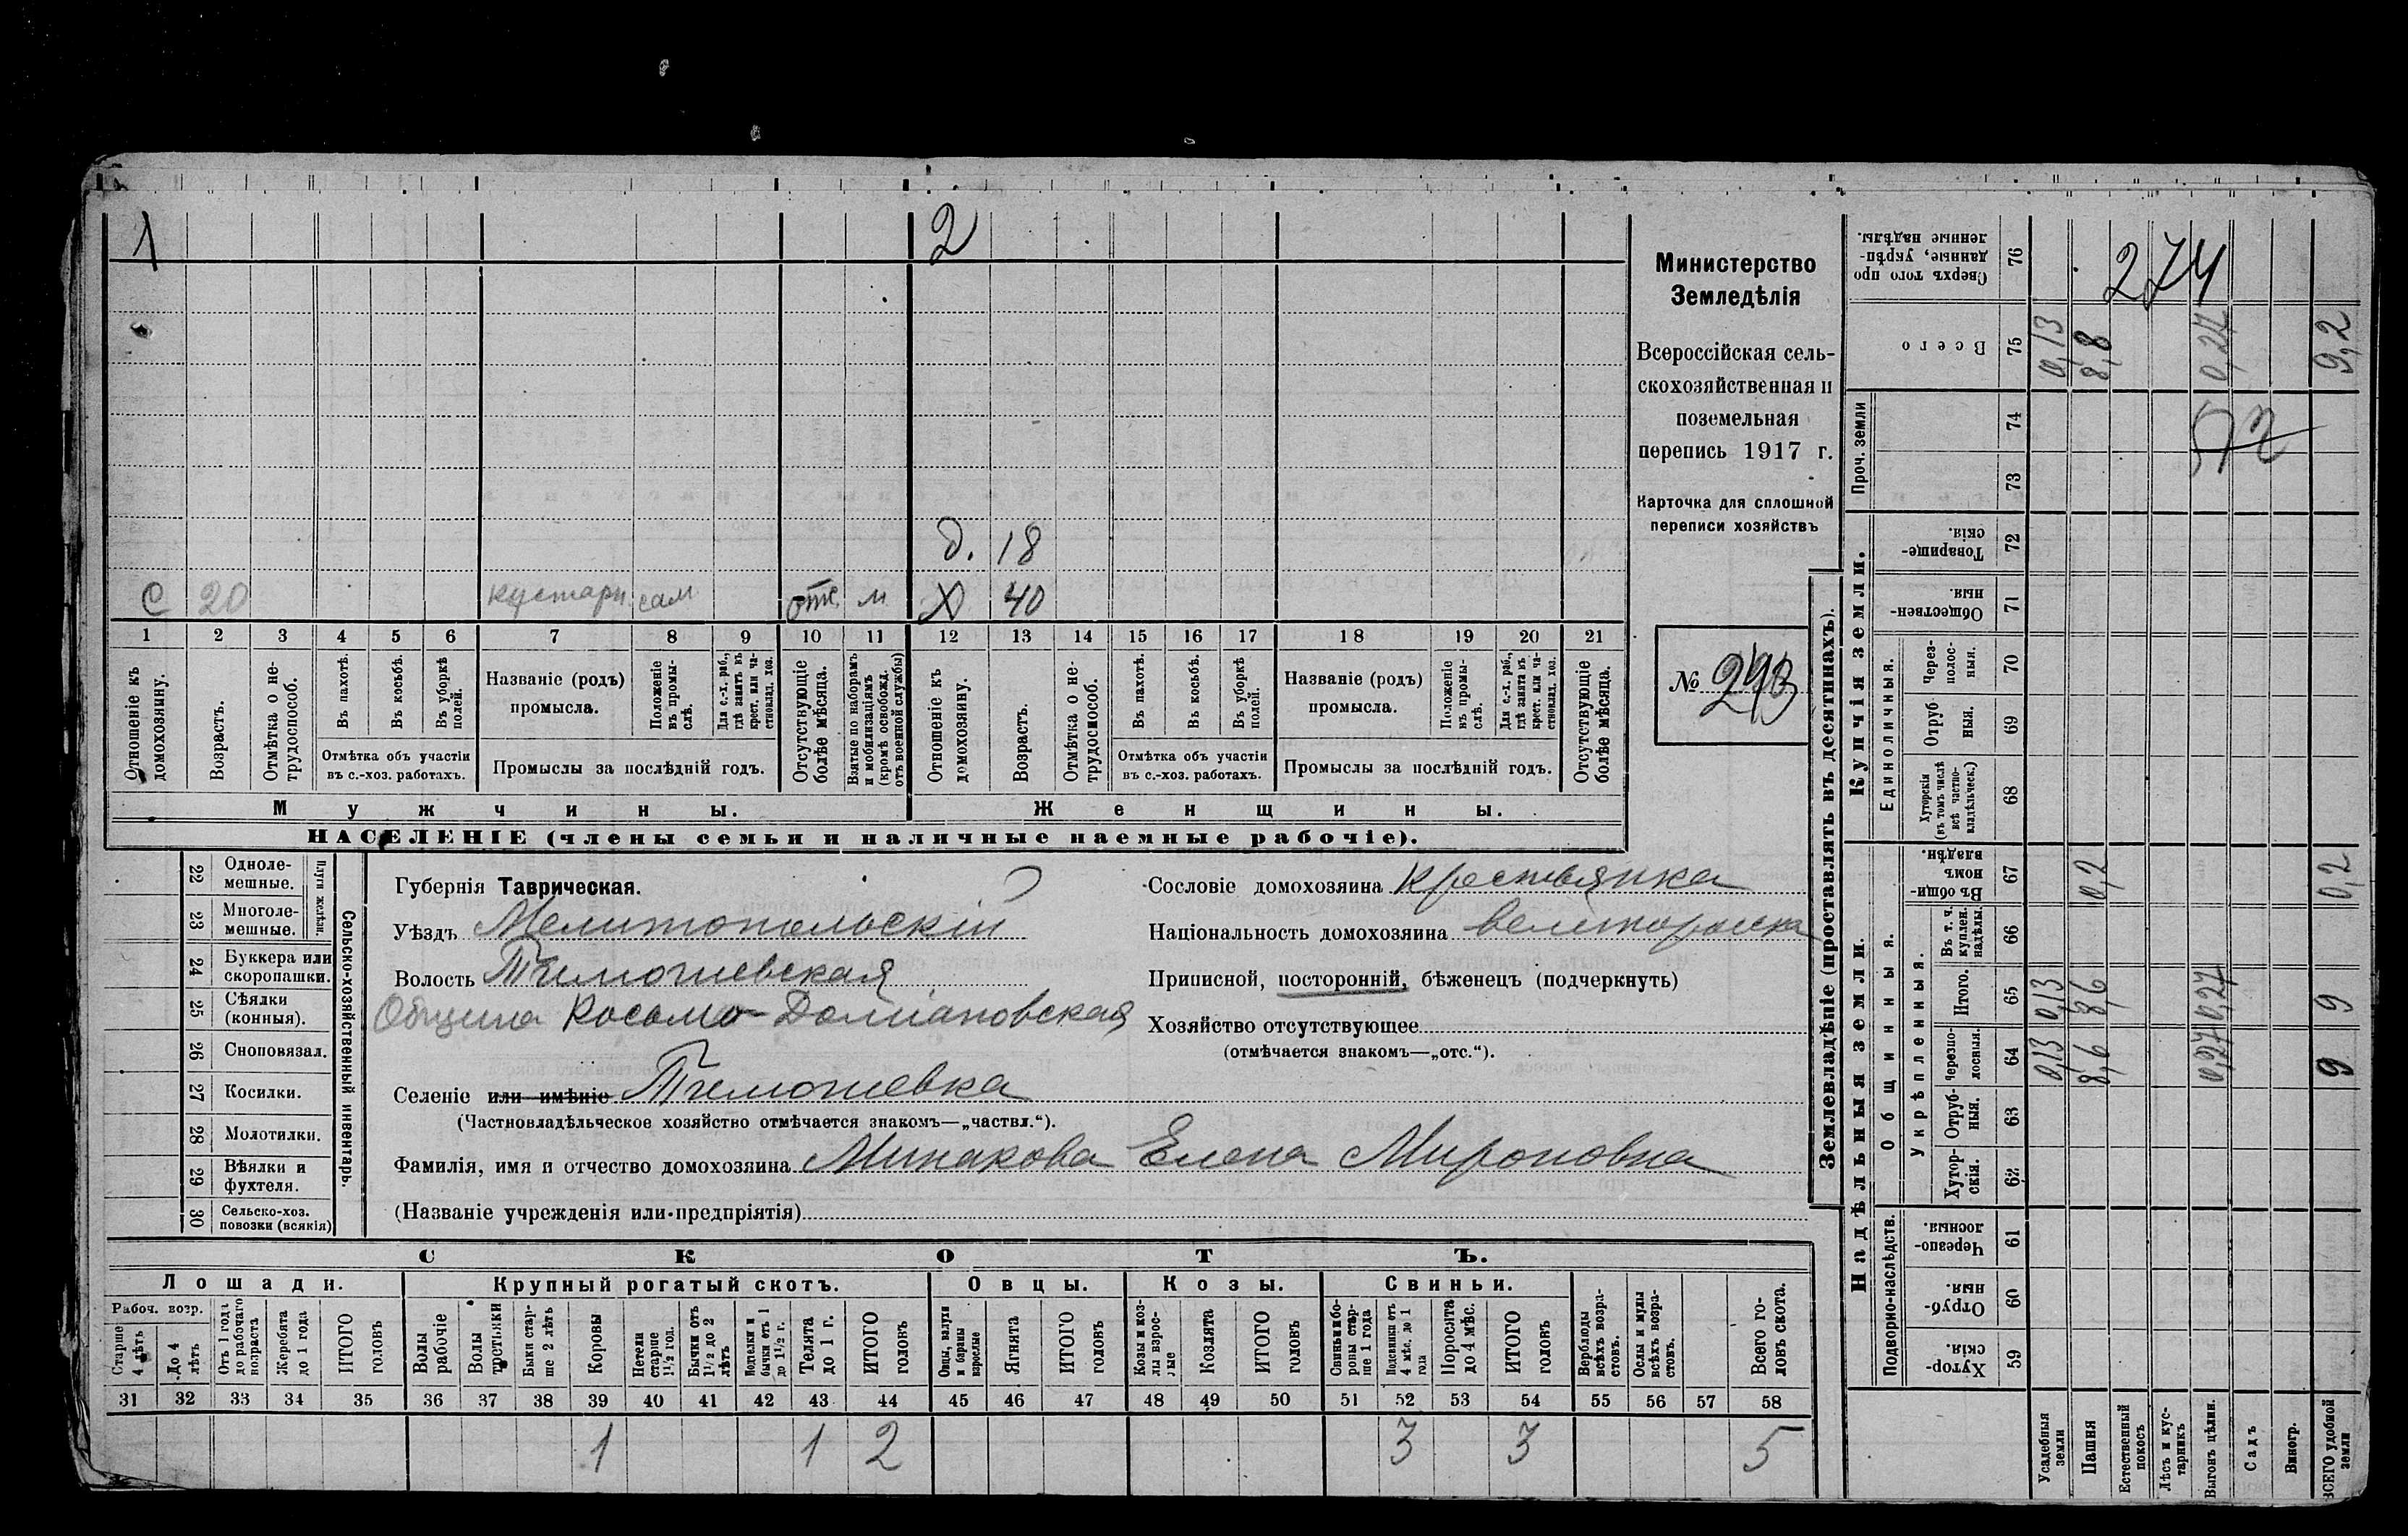 1
2
д. 18
с 20 кустарн. сам отс. м
Х 40
1 2 3 4 5 6 7 8 9 10 11 12 13 14 15 16 17 18 19 20 21
Отношеніе къ домохозяину.
Возрастъ.
Отмѣтка о нетрудоспособ.
Въ пахотѣ.
Въ косьбѣ.
Въ уборкѣ полей.
Отмѣтка объ участіи
въ с.-хоз. работахъ.
Названіе (родъ)
промысла.
Положеніе въ промыслѣ.
Для с.-х. раб., гдѣ занятъ въ крест. или частновлад. хоз.
Промыслы за послѣдній годъ.
Отсутствующіе болѣе мѣсяца.
Взятые по наборамъ и мобилизаціямъ (кромѣ освобожд. отъ военной службы)
Отношеніе къ домохозяину.
Возрастъ.
Отмѣтка о нетрудоспособ.
Въ пахотѣ.
Въ косьбѣ.
Въ уборкѣ полей.
Отмѣтка объ участіи
въ с.-хоз. работахъ.
Названіе (родъ)
промысла.
Положеніе въ промыслѣ.
Для с.-х. раб., гдѣ занята въ крест. или частновлад. хоз.
Промыслы за послѣдній годъ.
Отсутствующіе болѣе мѣсяца.
Мужчины.
Женщины.
НАСЕЛЕНІЕ (члены семьи и наличные наемные рабочіе).
Министерство
Земледѣлія
Всероссійская сель-
скохозяйственная и
поземельная
перепись 1917 г.
Карточка для сплошной
переписи хозяйствъ
№ 293
Сельско-хозяйственный инвентарь.
Плуги желѣзн.
22 Одноле-
мешные.
23 Многоле-
мешные.
24 Буккера или
скоропашки.
25 Сѣялки
(конныя).
26 Сноповязал.
27 Косилки.
28 Молотилки.
29 Вѣялки и
фухтеля.
30 Сельско-хоз.
повозки (всякія)
Губернія Таврическая.
Уѣздъ Мелитопольскій
Волость Тимошевская
Община Косьмо-Даміановская
Селеніе или имѣніе Тимошевка
(Частновладѣльческое хозяйство отмѣчается знакомъ—„частвл.“).
Фамилія, имя и отчество домохозяина Минакова Елена Мироновна
(Названіе учрежденія или предпріятія)
Сословіе домохозяина крестьянка
Національность домохозяина великоросска
Приписной, посторонній, бѣженецъ (подчеркнуть)
Хозяйство отсутствующее
(отмѣчается знакомъ—„отс.“).
СКОТЪ.
Лошади. Крупный рогатый скотъ. Овцы. Козы. Свиньи.
Рабоч. возр.
Старше 4 лѣтъ
До 4 лѣтъ
Отъ 1 года до рабочаго возраста
Жеребята до 1 года
ИТОГО головъ
Волы рабочіе
Волы
Быки старше 2 лѣтъ
Коровы
Нетели старше 1½ год.
Бычки отъ 1½ до 2 лѣтъ
бычки отъ 1 до 1½ г.
Телята до 1 г.
ИТОГО головъ
Овцы, валухи и бараны взрослые
Ягнята
ИТОГО головъ
Козы и козлы взрослые
Козлята
ИТОГО головъ
Свиньи и боровы старше 1 года
Подсвинки отъ 4 мѣс. до 1 года
Поросята до 4 мѣс.
ИТОГО головъ
Верблюды всѣхъ возрастовъ.
Ослы и мулы всѣхъ возрастовъ.
Всего головъ скота.
31 32 33 34 35 36 37 38 39 40 41 42 43 44 45 46 47 48 49 50 51 52 53 54 55 56 57 58
1 1 2 3 3 5
Землевладѣніе (проставлять въ десятинахъ).
274
72
Сверхъ того проданные, укрѣпленные надѣлы. 76
Всего 75 0,13 8,8 0,27 9,2
Проч. земли 74 73
Купчія земли.
Товарищескія. 72
Общественныя. 71
Единоличныя.
Черезполосныя. 70
Отрубныя. 69
Хуторскія (въ томъ числѣ всѣ частновладѣльческ.) 68
Надѣльныя земли.
Общинныя.
Въ общинномъ владѣн. 67 0,2 0,2
Укрѣпленныя.
Въ т. ч. куплен. надѣлы. 66
Итого. 65 0,13 8,6 0,27 9
Черезполосныя. 64 0,13 8,6 0,27 9
Отрубныя. 63
Хуторскія. 62
Подворно-наслѣдств.
Черезполосныя. 61
Отрубныя. 60
Хуторскія. 59
Усадебныя земли
Пашня
Естественный покосъ
Лѣсъ и кустарникъ
Выгонъ цѣлин.
Садъ
Виногр.
ВСЕГО удобной земли